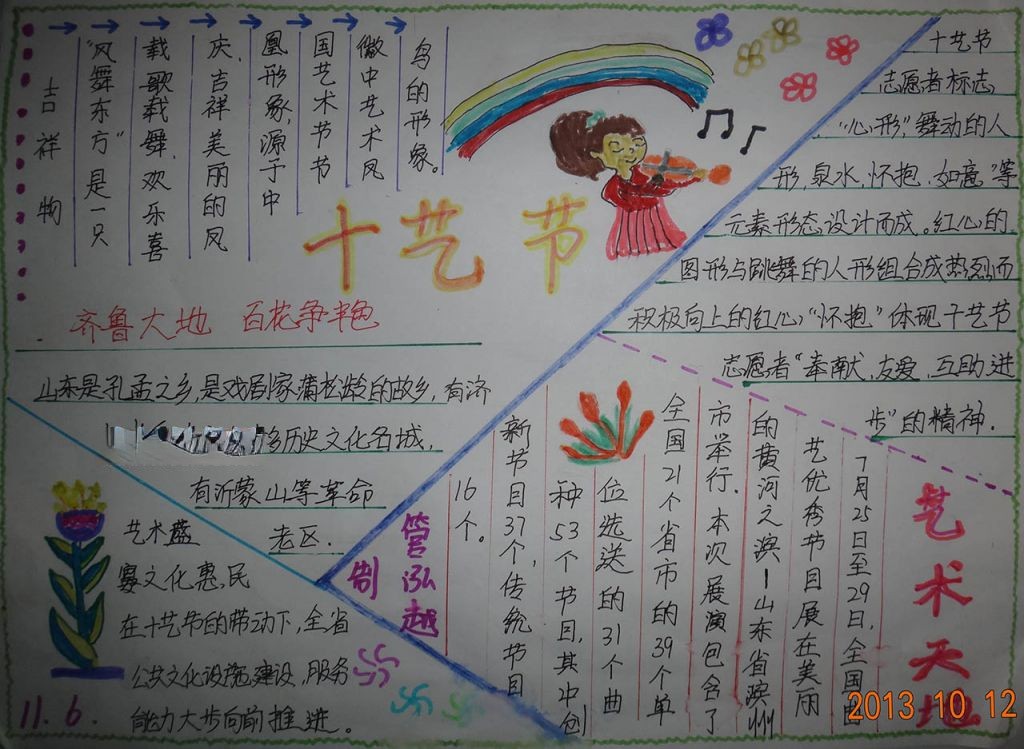 吉祥物
“风舞东方”是一只
载歌载舞、欢乐喜
庆、吉祥美丽的凤
凰形象,源于中
国艺术节节
徽中艺术凤
鸟的形象。
十艺节
十艺节
志愿者标志
“心形,”舞动的人
形,泉水,怀抱、如意”等
元素形态设计而成。红心的
图形与跳舞的人形组合成热烈而
积极向上的红心“怀抱”体现十艺节
志愿者“奉献,友爱,互助,进
步”的精神.
齐鲁大地 百花争艳
山东是孔孟之乡,是戏剧家蒲松龄的故乡,有济
多历史文化名城,
有沂蒙山等革命
老区.
艺术盛
宴文化惠,民
在十艺节的带动下,全省
公共文化设施建设,服务
能力大步向前推进。
11.6.
管泓越
制
艺术天地
7月25日至29日,全国曲
艺优秀节目展在美丽
的黄河之滨—山东省滨州
市举行.本次展演包含了
全国21个省市的39个单
位选送的31个曲
种53个节目,其中创
新节目37个,传统节目
16个。
2013.10.12